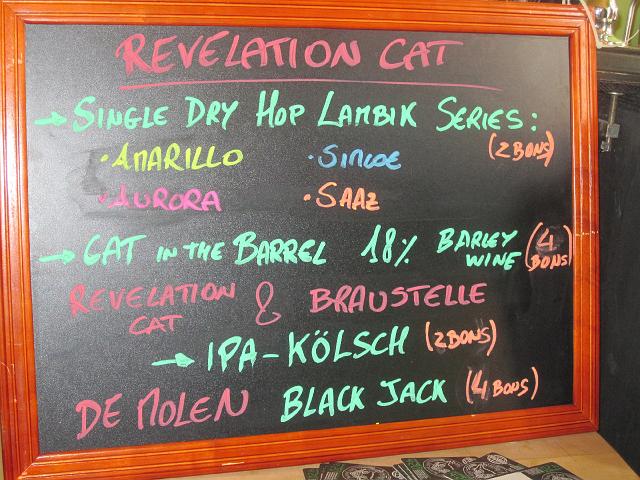 REVELATION CAT
→ SINGLE DRY HOP LAMBIK SERIES:
(2 BONS)
· AMARILLO · SIMCOE
· AURORA · SAAZ
→ CAT IN THE BARREL 18% BARLEY WINE (4 BONS)
REVELATION CAT & BRAUSTELLE
→ IPA-KÖLSCH (2BONS)
DE MOLEN BLACK JACK (4 BONS)